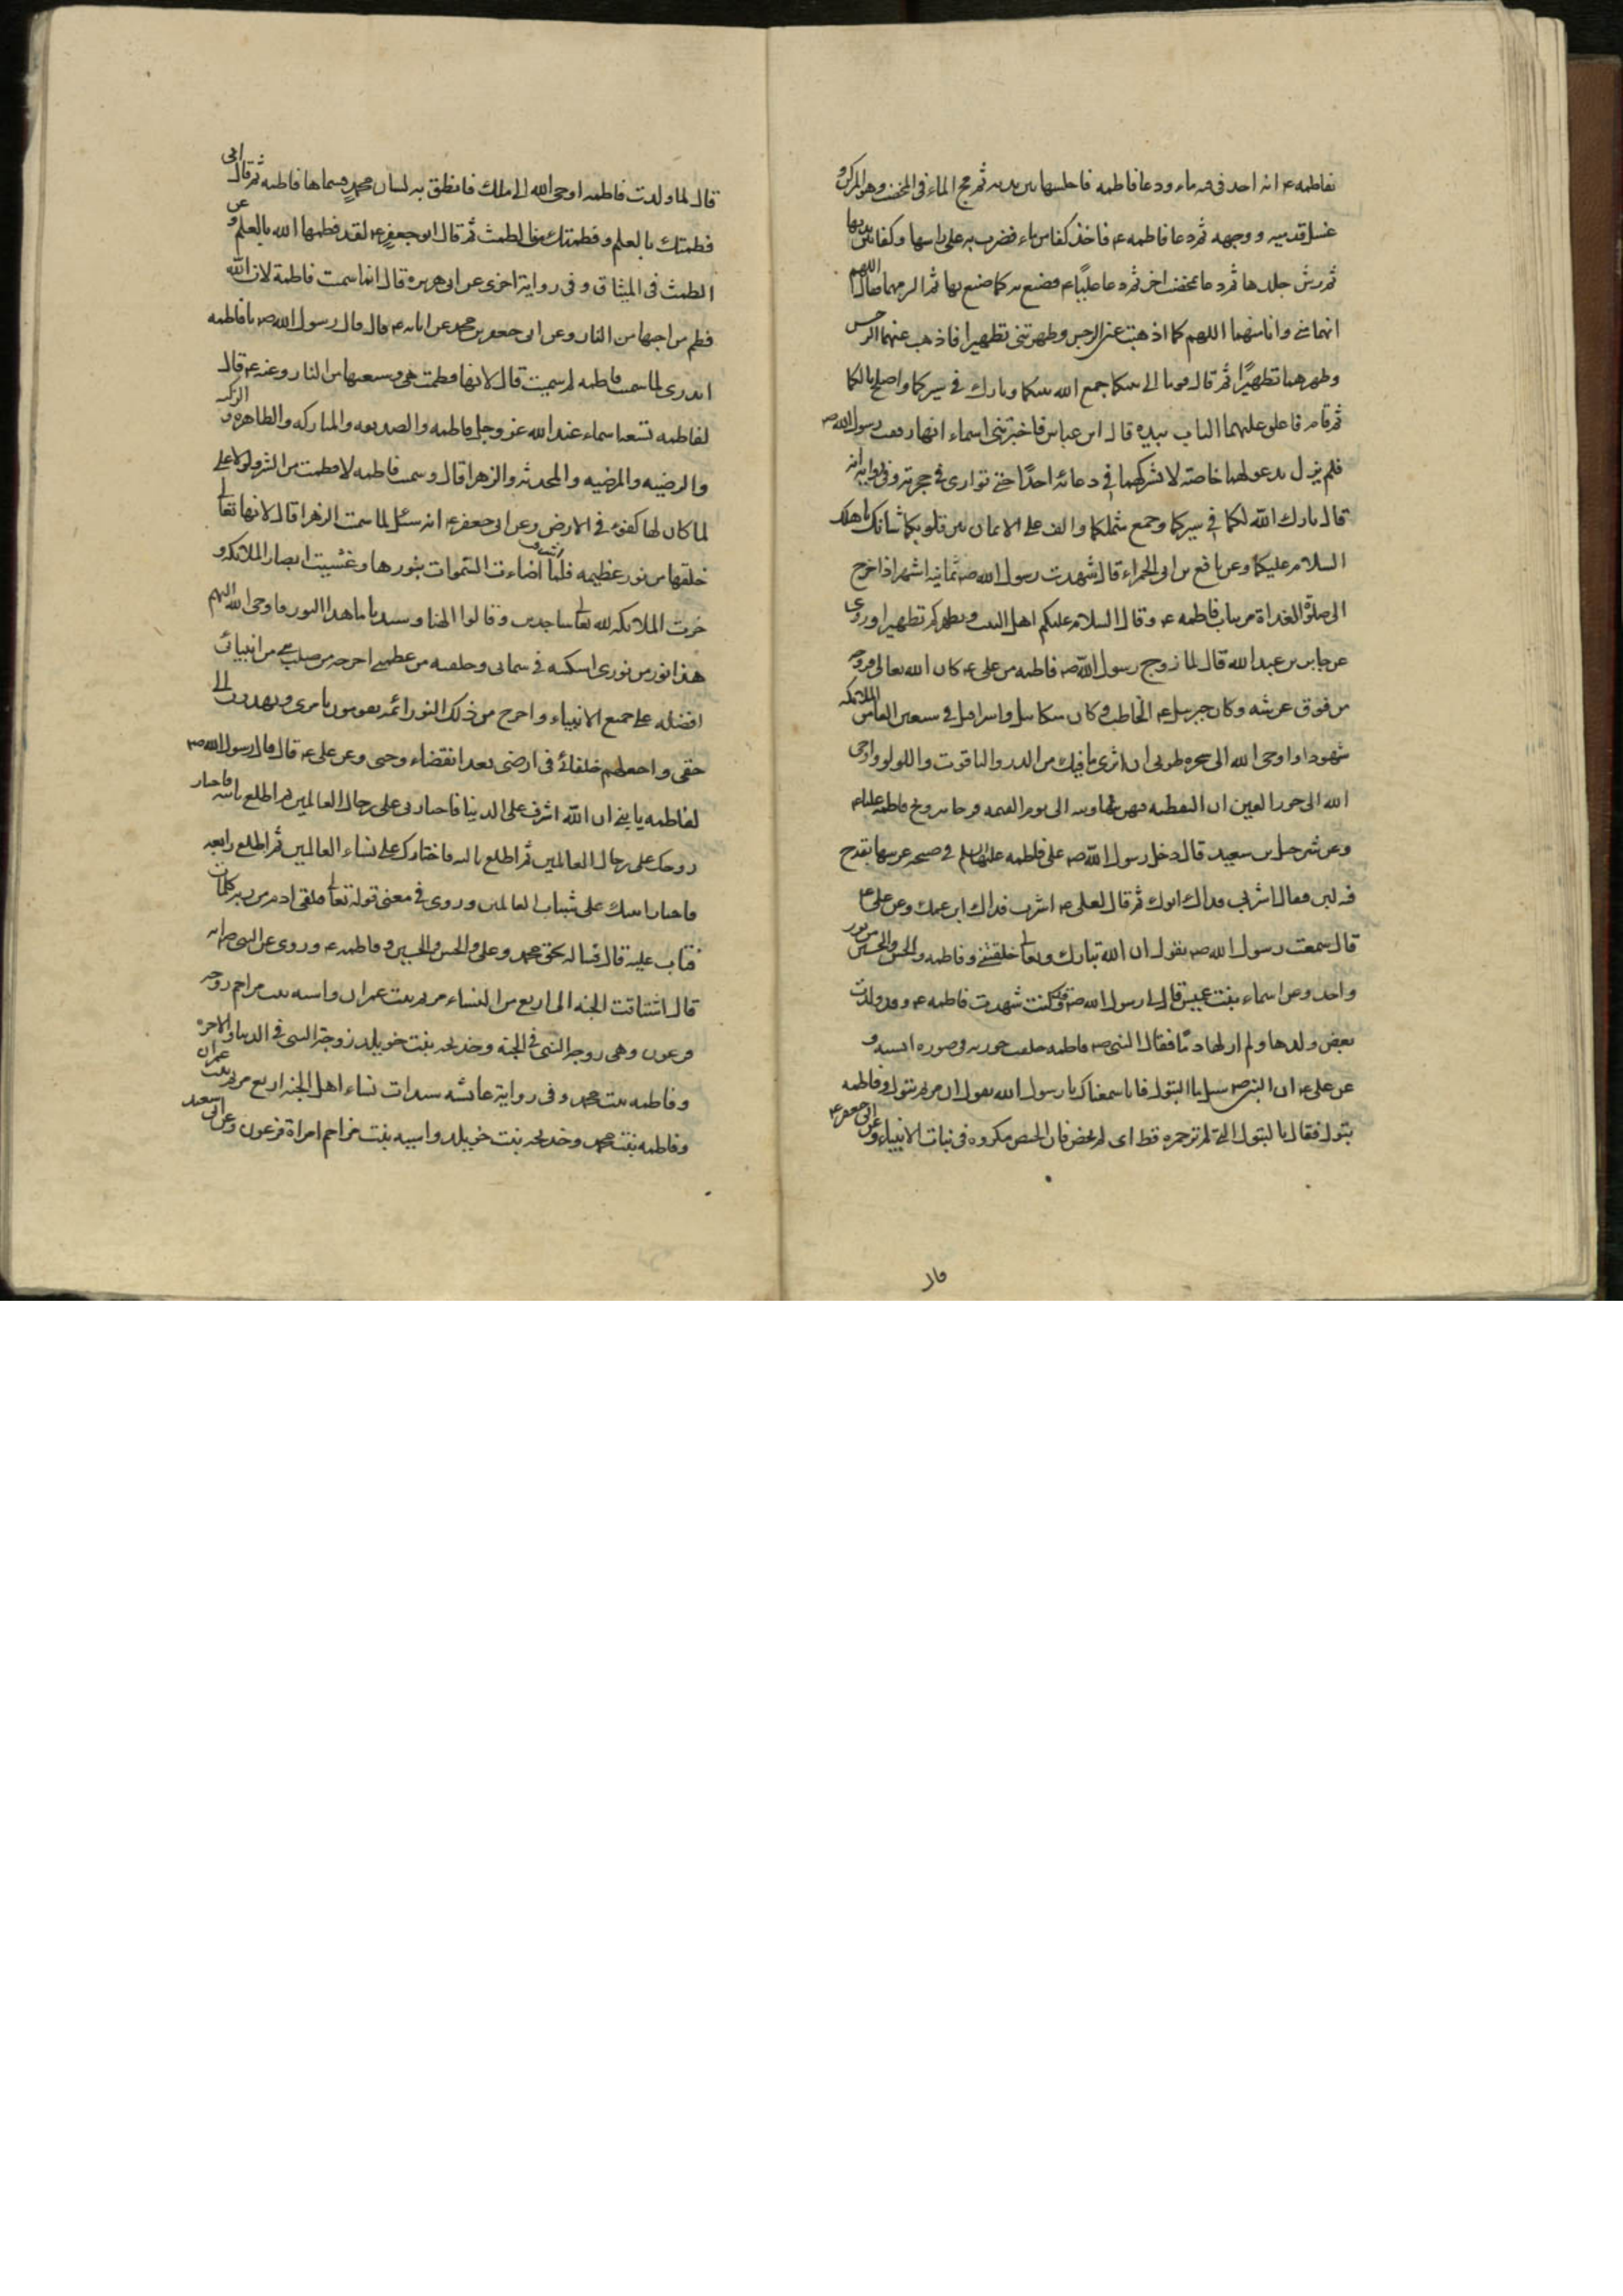 بفاطمه ع انه احد فى فيه ماء ودعا فاطمه فاجلسها بين يديه ثم مج الماء فى المخضب وهو المركن و
غسل قدميه ووجهه ثم دعا فاطمه ع فاخذ كفا من ماء فضرب به على راسها وكفا بين يديها
ثم رش جلدها ثم دعا بمخضب اخر ثم دعا عليًا ع فصنع به كما صنع بها ثم التزمهما فقال اللهم
انهما منى وانا منهما اللهم كما اذهبت عنى الرجس وطهرتنى تطهيرا فاذهب عنهما الرجس
وطهرهما تطهيرًا ثم قال قوما الى بيتكما جمع الله بينكما وبارك فى سيركما واصلح بالكما
ثم قام فاغلق عليهما الباب بيده قال ابن عباس فاخبرتنى اسماء انها رمقت رسول الله ص
فلم يزل يدعو لهما خاصة لا يشركهما فى دعائه احدًا حتى توارى فى حجرته وفى رواية انه
قال بارك الله لكما فى سيركما وجمع شملكما والف على الايمان بين قلوبكما شانك باهلك
السلام عليكما وعن نافع بن ابى الحمراء قال شهدت رسول الله ص ثمانية اشهر اذا خرج
الى صلوة الغداة مر بباب فاطمه ع وقال السلام عليكم اهل البيت ويطهركم تطهيرا وروى
عن جابر بن عبد الله قال لما زوج رسول الله ص فاطمه من على ع كان الله تعالى مزوجه
من فوق عرشه وكان جبرئيل ع الخاطب وكان ميكائيل واسرافيل فى سبعين الفا من الملائكه
شهودا واوحى الله الى شجره طوبى ان انثرى ما فيك من الدر والياقوت واللولو واوحى
الله الى حور العين ان التقطنه فهن يتهادينه الى يوم القيمه فرحا بتزويج فاطمه عليا ع
وعن شرحبيل بن سعيد قال دخل رسول الله ص على فاطمه عليها السلم فى صبيحه عرسها بقدح
فيه لبن فقال اشربى فداك ابوك ثم قال لعلى ع اشرب فداك ابن عمك وعن على ع
قال سمعت رسول الله ص يقول ان الله تبارك وتعالى خلقنى وفاطمه والحسن والحسين من نور
واحد وعن اسماء بنت عميس قال لى رسول الله ص وقد كنت شهدت فاطمه ع وقد ولدت
بعض ولدها ولم ار لها دمًا فقال النبى ص فاطمه خلقت حوريه فى صوره انسيه و
عن على ع ان النبى ص سئل ما البتول فانا سمعناك يا رسول الله يقول ان مريم بتول وفاطمه
بتول فقال ما البتول التى لم تر حمره قط اى لم تحض فان الحيض مكروه فى بنات الانبياء وعن ابى جعفر ع
قال
قال لما ولدت فاطمه اوحى الله الى ملك فانطق به لسان محمد فسماها فاطمه ثم قال انى
فطمتك بالعلم وفطمتك عن الطمث ثم قال ابو جعفر ع لقد فطمها الله بالعلم وعن
الطمث فى الميثاق وفى رواية اخرى عن ابى هريره قال انما سميت فاطمة لان الله
فطم من احبها من النار وعن ابى جعفر بن محمد عن ابائه ع قال قال رسول الله ص يا فاطمه
اتدرى لما سميت فاطمه لم سميت قال لانها فطمت هى وشيعتها من النار وعنه ع قال
لفاطمه تسعه اسماء عند الله عز وجل فاطمه والصديقه والمباركه والطاهره والزكيه
والرضيه والمرضيه والمحدثه والزهرا قال وسميت فاطمه لا فطمت من الشر ولولا على
لما كان لها كفوء فى الارض وعن ابى جعفر ع انه سئل لما سميت الزهرا قال لانها تعالى
خلقها من نور عظيمه فلما اشرقت اضاءت السموات بنورها وغشيت ابصار الملائكه و
خرت الملائكه لله تعالى ساجدين وقالوا الهنا وسيدنا ما هذا النور فاوحى الله اليهم
هذا نور من نورى اسكنه فى سمائى وخلقته من عظمتى اخرجه من صلب نبى من انبيائى
افضله على جميع الانبياء واخرج من ذلك النور ائمه يقومون بامرى ويهدون الى
حقى واجعلهم خلفائى فى ارضى بعد انقضاء وحيى وعن على ع قال قال رسول الله ص
لفاطمه يا بنيه ان الله اشرف على الدنيا فاختارنى على رجال العالمين ثم اطلع ثانيه فاختار
زوجك على رجال العالمين ثم اطلع ثالثه فاختارك على نساء العالمين ثم اطلع رابعه
فاختار ابنيك على شباب العالمين وروى فى معنى قوله تعالى فتلقى ادم من ربه كلمات
فتاب عليه قال فساله بحق محمد وعلى والحسن والحسين وفاطمه ع وروى عن النبى ص انه
قال اشتاقت الجنه الى اربع من النساء مريم بنت عمران واسيه بنت مزاحم زوجه
فرعون وهى زوجة النبى فى الجنه وخديجه بنت خويلد زوجة النبى فى الدنيا والاخره
وفاطمه بنت محمد وفى رواية عائشه سيدات نساء اهل الجنه اربع مريم بنت عمران
وفاطمه بنت محمد وخديجه بنت خويلد واسيه بنت مزاحم امراة فرعون وعن ابى سعيد